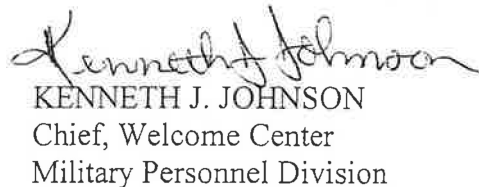 Kenneth J Johnson
KENNETH J. JOHNSON
Chief, Welcome Center
Military Personnel Division